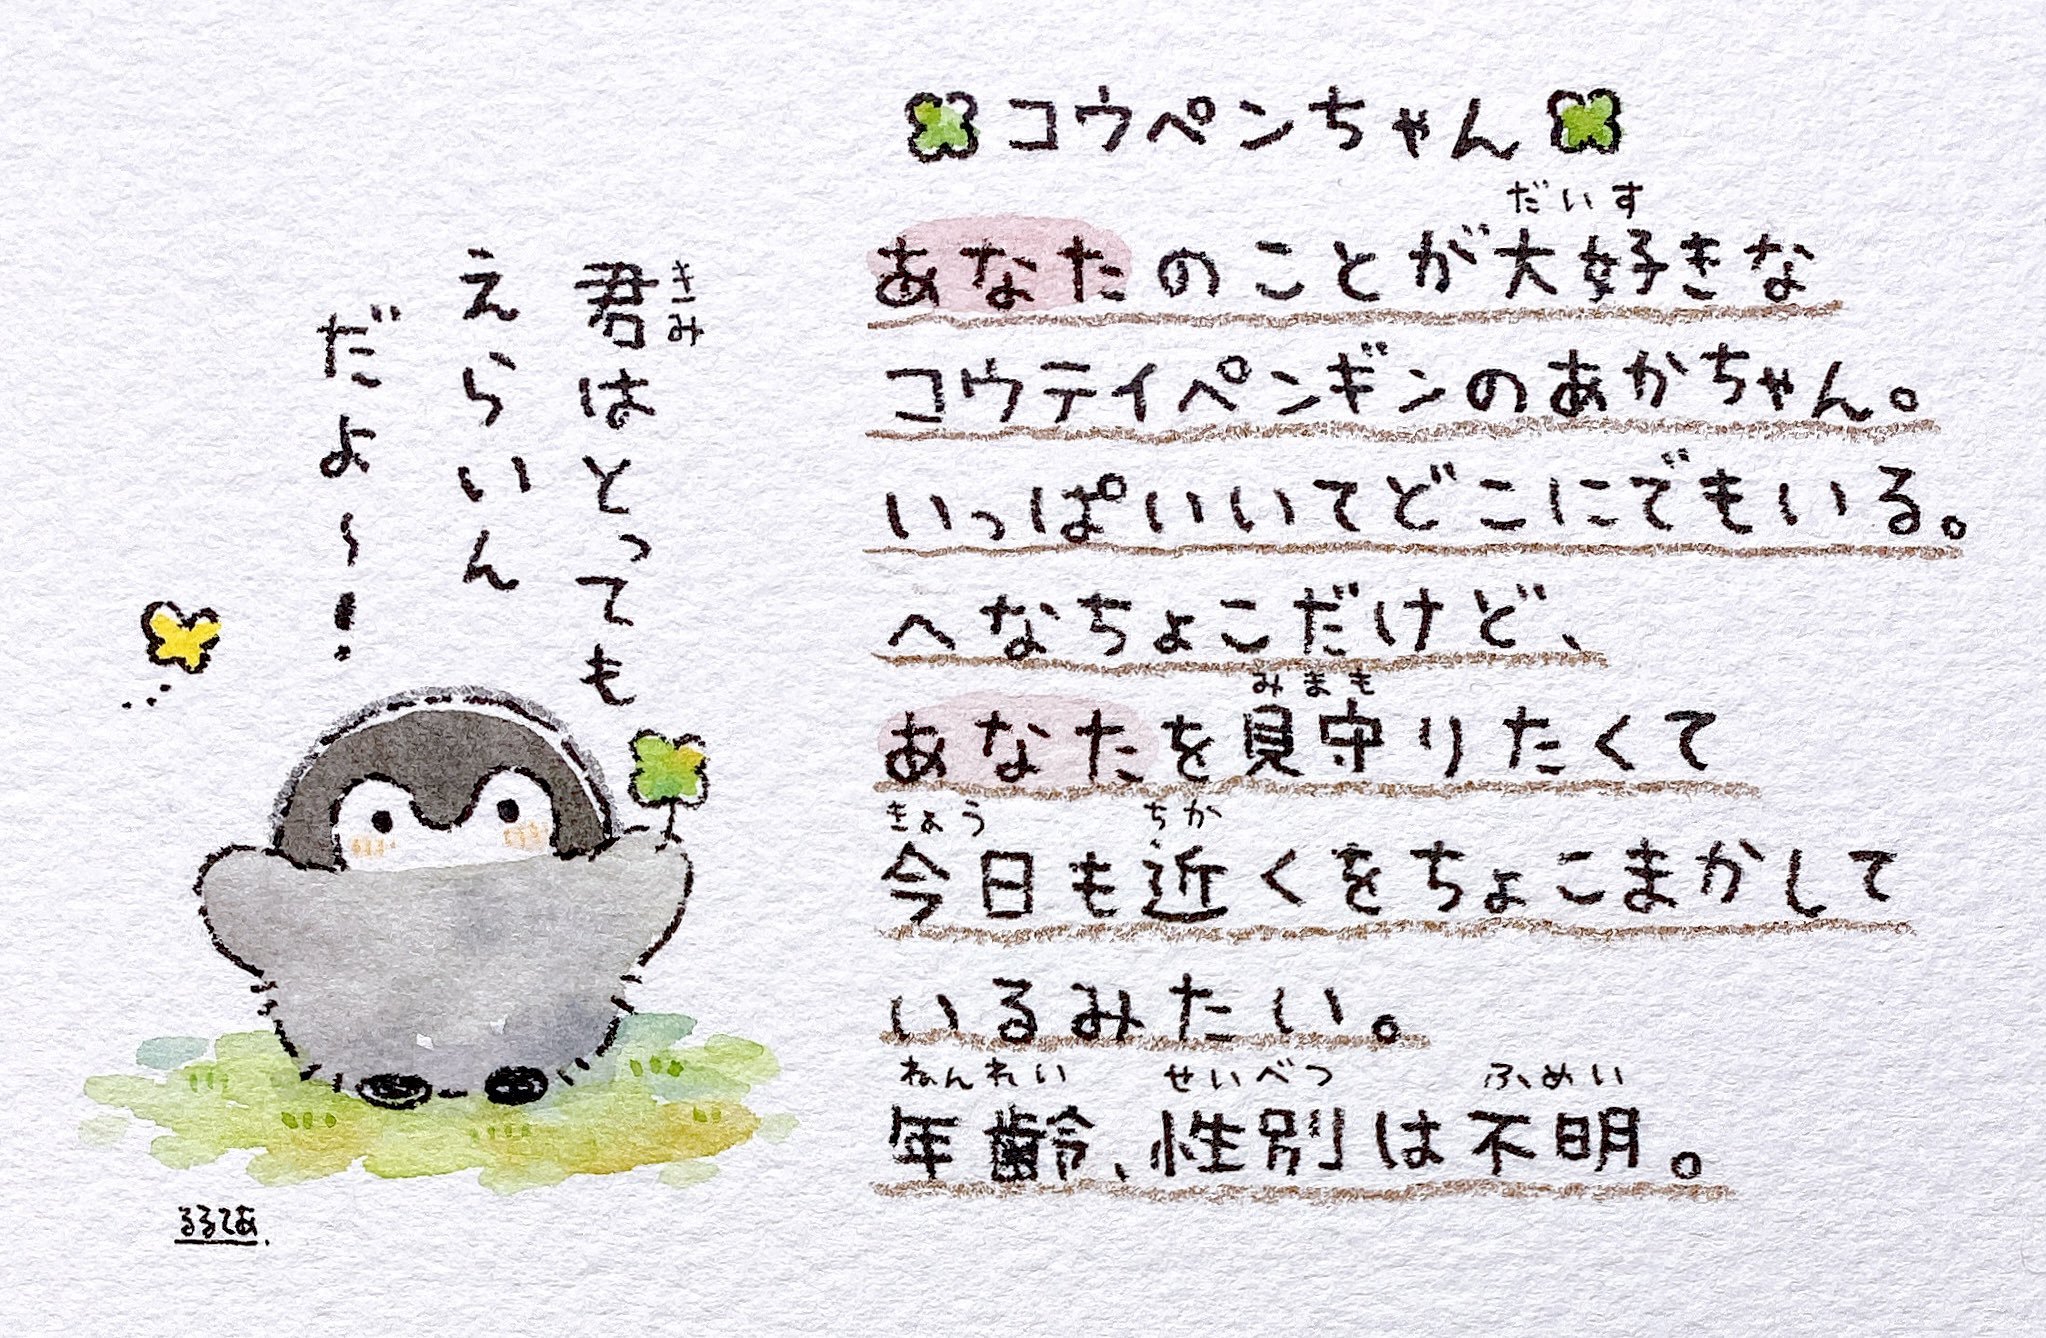 コウペンちゃん
だいす
あなたのことが大好きな
コウテイペンギンのあかちゃん。
いっぱいいてどこにでもいる。
へなちょこだけど、
みまも
あなたを見守りたくて
きょう ちか
今日も近くをちょこまかして
いるみたい。
ねんれい せいべつ ふめい
年齢、性別は不明。
きみ
君はとっても
えらいん
だよ~!
るるてあ